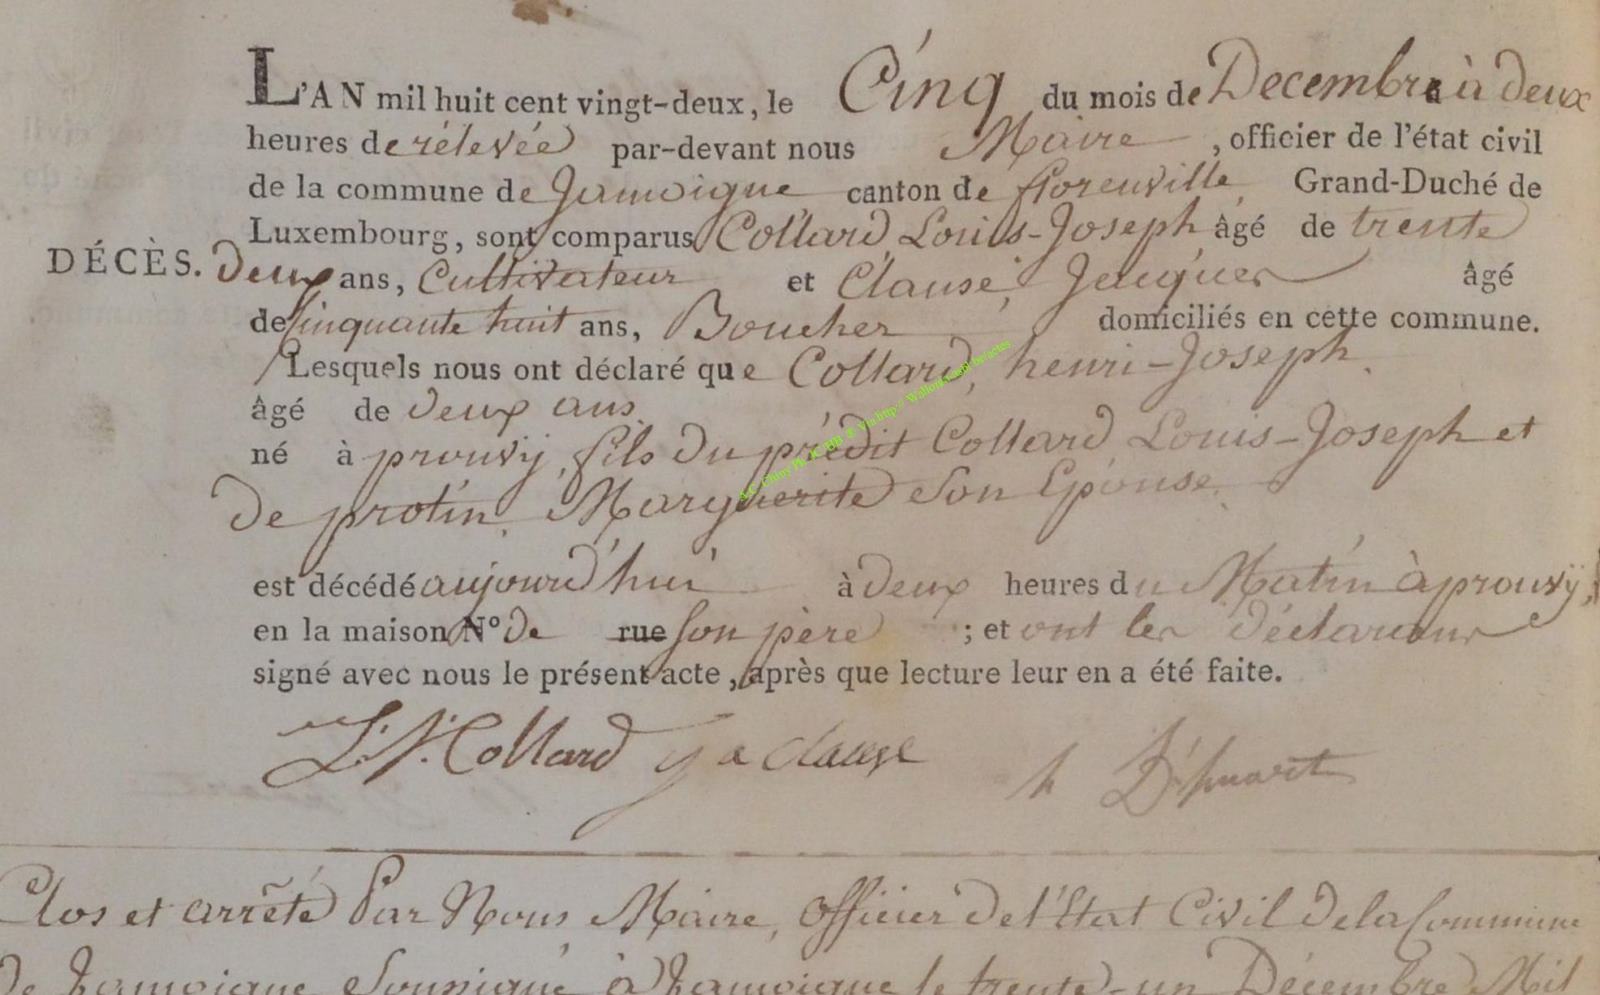 L'AN mil huit cent vingt-deux, le Cinq du mois de Decembre à deux
heures de rélevée par-devant nous Maire, officier de l'état civil
de la commune de Jamoigne canton de florenville Grand-Duché de
Luxembourg, sont comparus Collard Louis-Joseph âgé de trente
DÉCÈS. deux ans, Cultivateur et Clause, Jacques âgé
de Cinquante huit ans, Boucher domiciliés en cette commune.
Lesquels nous ont déclaré que Collard, henri-Joseph.
âgé de deux ans
né à prouvÿ, fils du prédit Collard Louis-Joseph et
De protin, Marguerite Son Epouse.
est décédé aujourd'hui à deux heures du Matin à prouvÿ,
en la maison N° de rue son père ; et ont les déclarans
signé avec nous le présent acte, après que lecture leur en a été faite.
L. J. Collard J a clause h
A.C. Chiny Via http://
Clos et arrêté Par Nous Maire, Officier de l'Etat Civil de la Commune
de Jamoigne Soussigné à Jamoigne le trente-un Décembre Mil